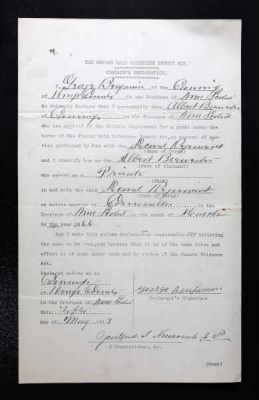 THE FENIAN RAID VOLUNTEER BOUNTY ACT.
COMRADE'S DECLARATION.
I George Benjamin of the
of Kings County in the Province of Nova Scotia
do solemnly declare that I personally knew Albert
of Canning in the Province of Nova Scotia
who has applied to the Militia Department for a grant under the
terms of the Fenian Raid Volunteer Bounty Act, on account of service
performed by him with the Second Regiment
(Name of Corps)
and I identify him as the Albert
(Name of Claimant)
who served as a Private
(Rank)
in and with the said Second Regiment
(Name of Corps)
on active service at Cornwallis in the
Province of Nova Scotia in the month of
in the year 1866
And I make this solemn declaration conscientiously believing
the same to be true, and knowing that it is of the same force and
effect as if made under oath and by virtue of the Canada Evidence
Act.
Declared before me at
of Kings County
in the Province of Nova Scotia
this
day of May 191
George Benjamin
Declarant's Signature
A Commissioner, &c.
(Over)